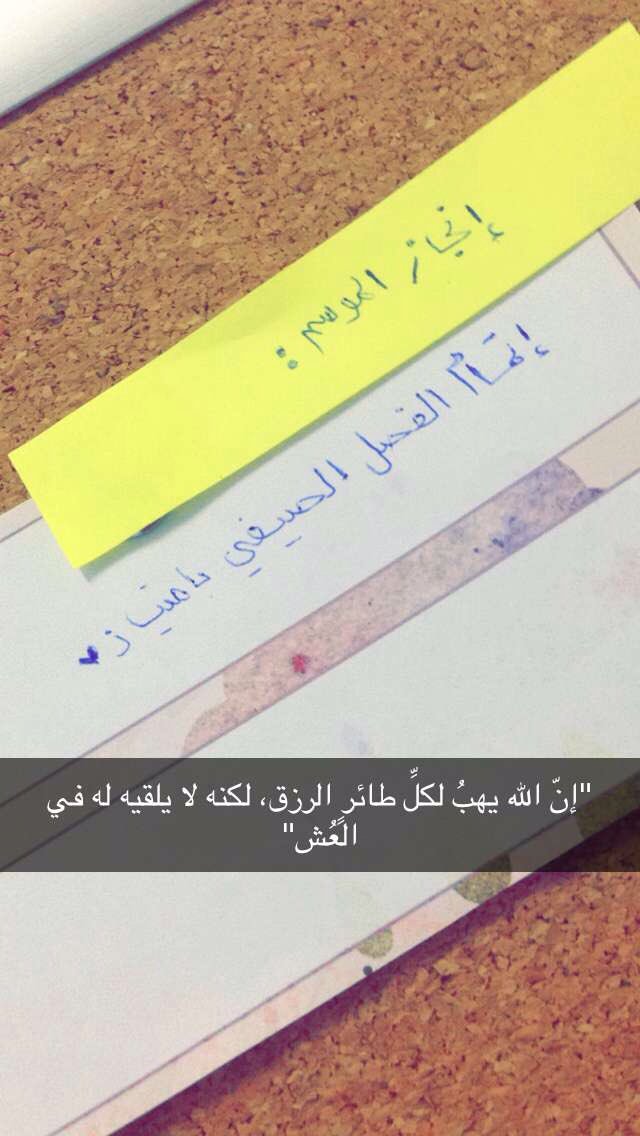 إنجاز الموسم :
إتمام الفصل الصيفي بامتياز ♥
"إنّ الله يهبُ لكلِّ طائرٍ الرزق، لكنه لا يلقيه له في
العُش"